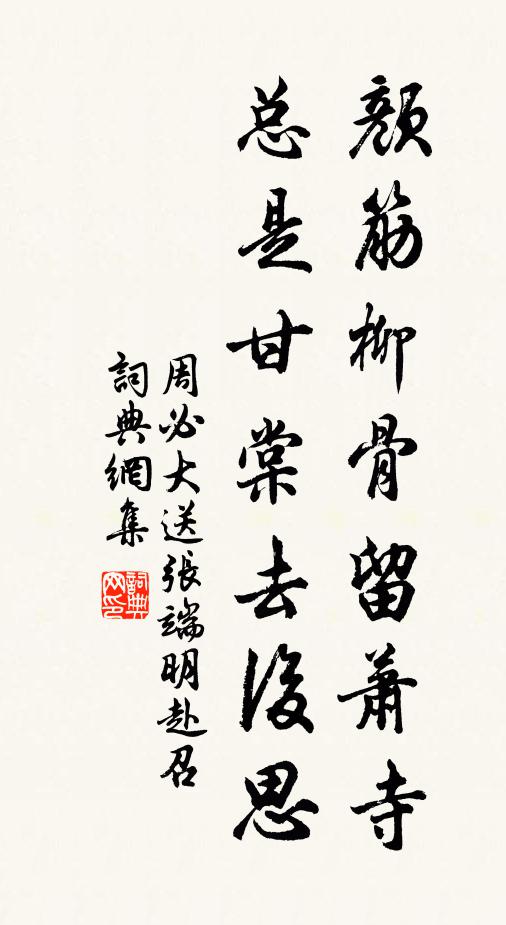 顏筋柳骨留蕭寺
总是甘棠去後思
周必大送張端明赴召
詞典網集
詞典网印